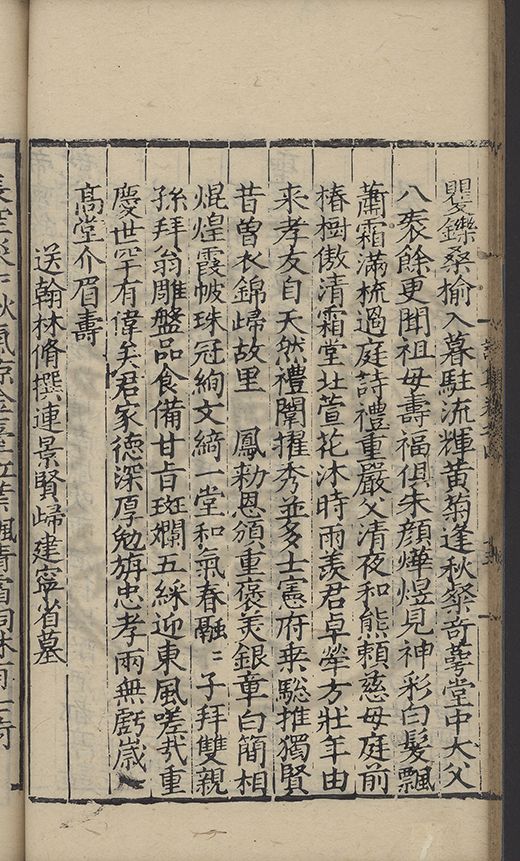 矍鑠桑榆入暮駐流輝黃菊逢秋粲奇萼堂中大父
八袠餘更聞祖母壽福俱朱顔燁煜見神彩白髮飄
蕭霜滿梳過庭詩禮重嚴父清夜和熊賴慈母庭前
椿樹傲清霜堂北萱花沐時雨羨君卓犖方壯年由
來孝友自天然禮闈擢秀並多士憲府乘驄推獨賢
昔曾衣錦歸故里 鳳勑恩頒重褒美銀章白簡相
焜煌霞帔珠冠絢文綺一堂和氣春融〻子拜雙親
孫拜翁雕盤品食備甘旨斑斕五綵迎東風嗟我重
慶世罕有偉矣君家德深厚勉旃忠孝兩無虧歲歲
高堂介眉壽
送翰林脩撰連景賢歸建寧省墓